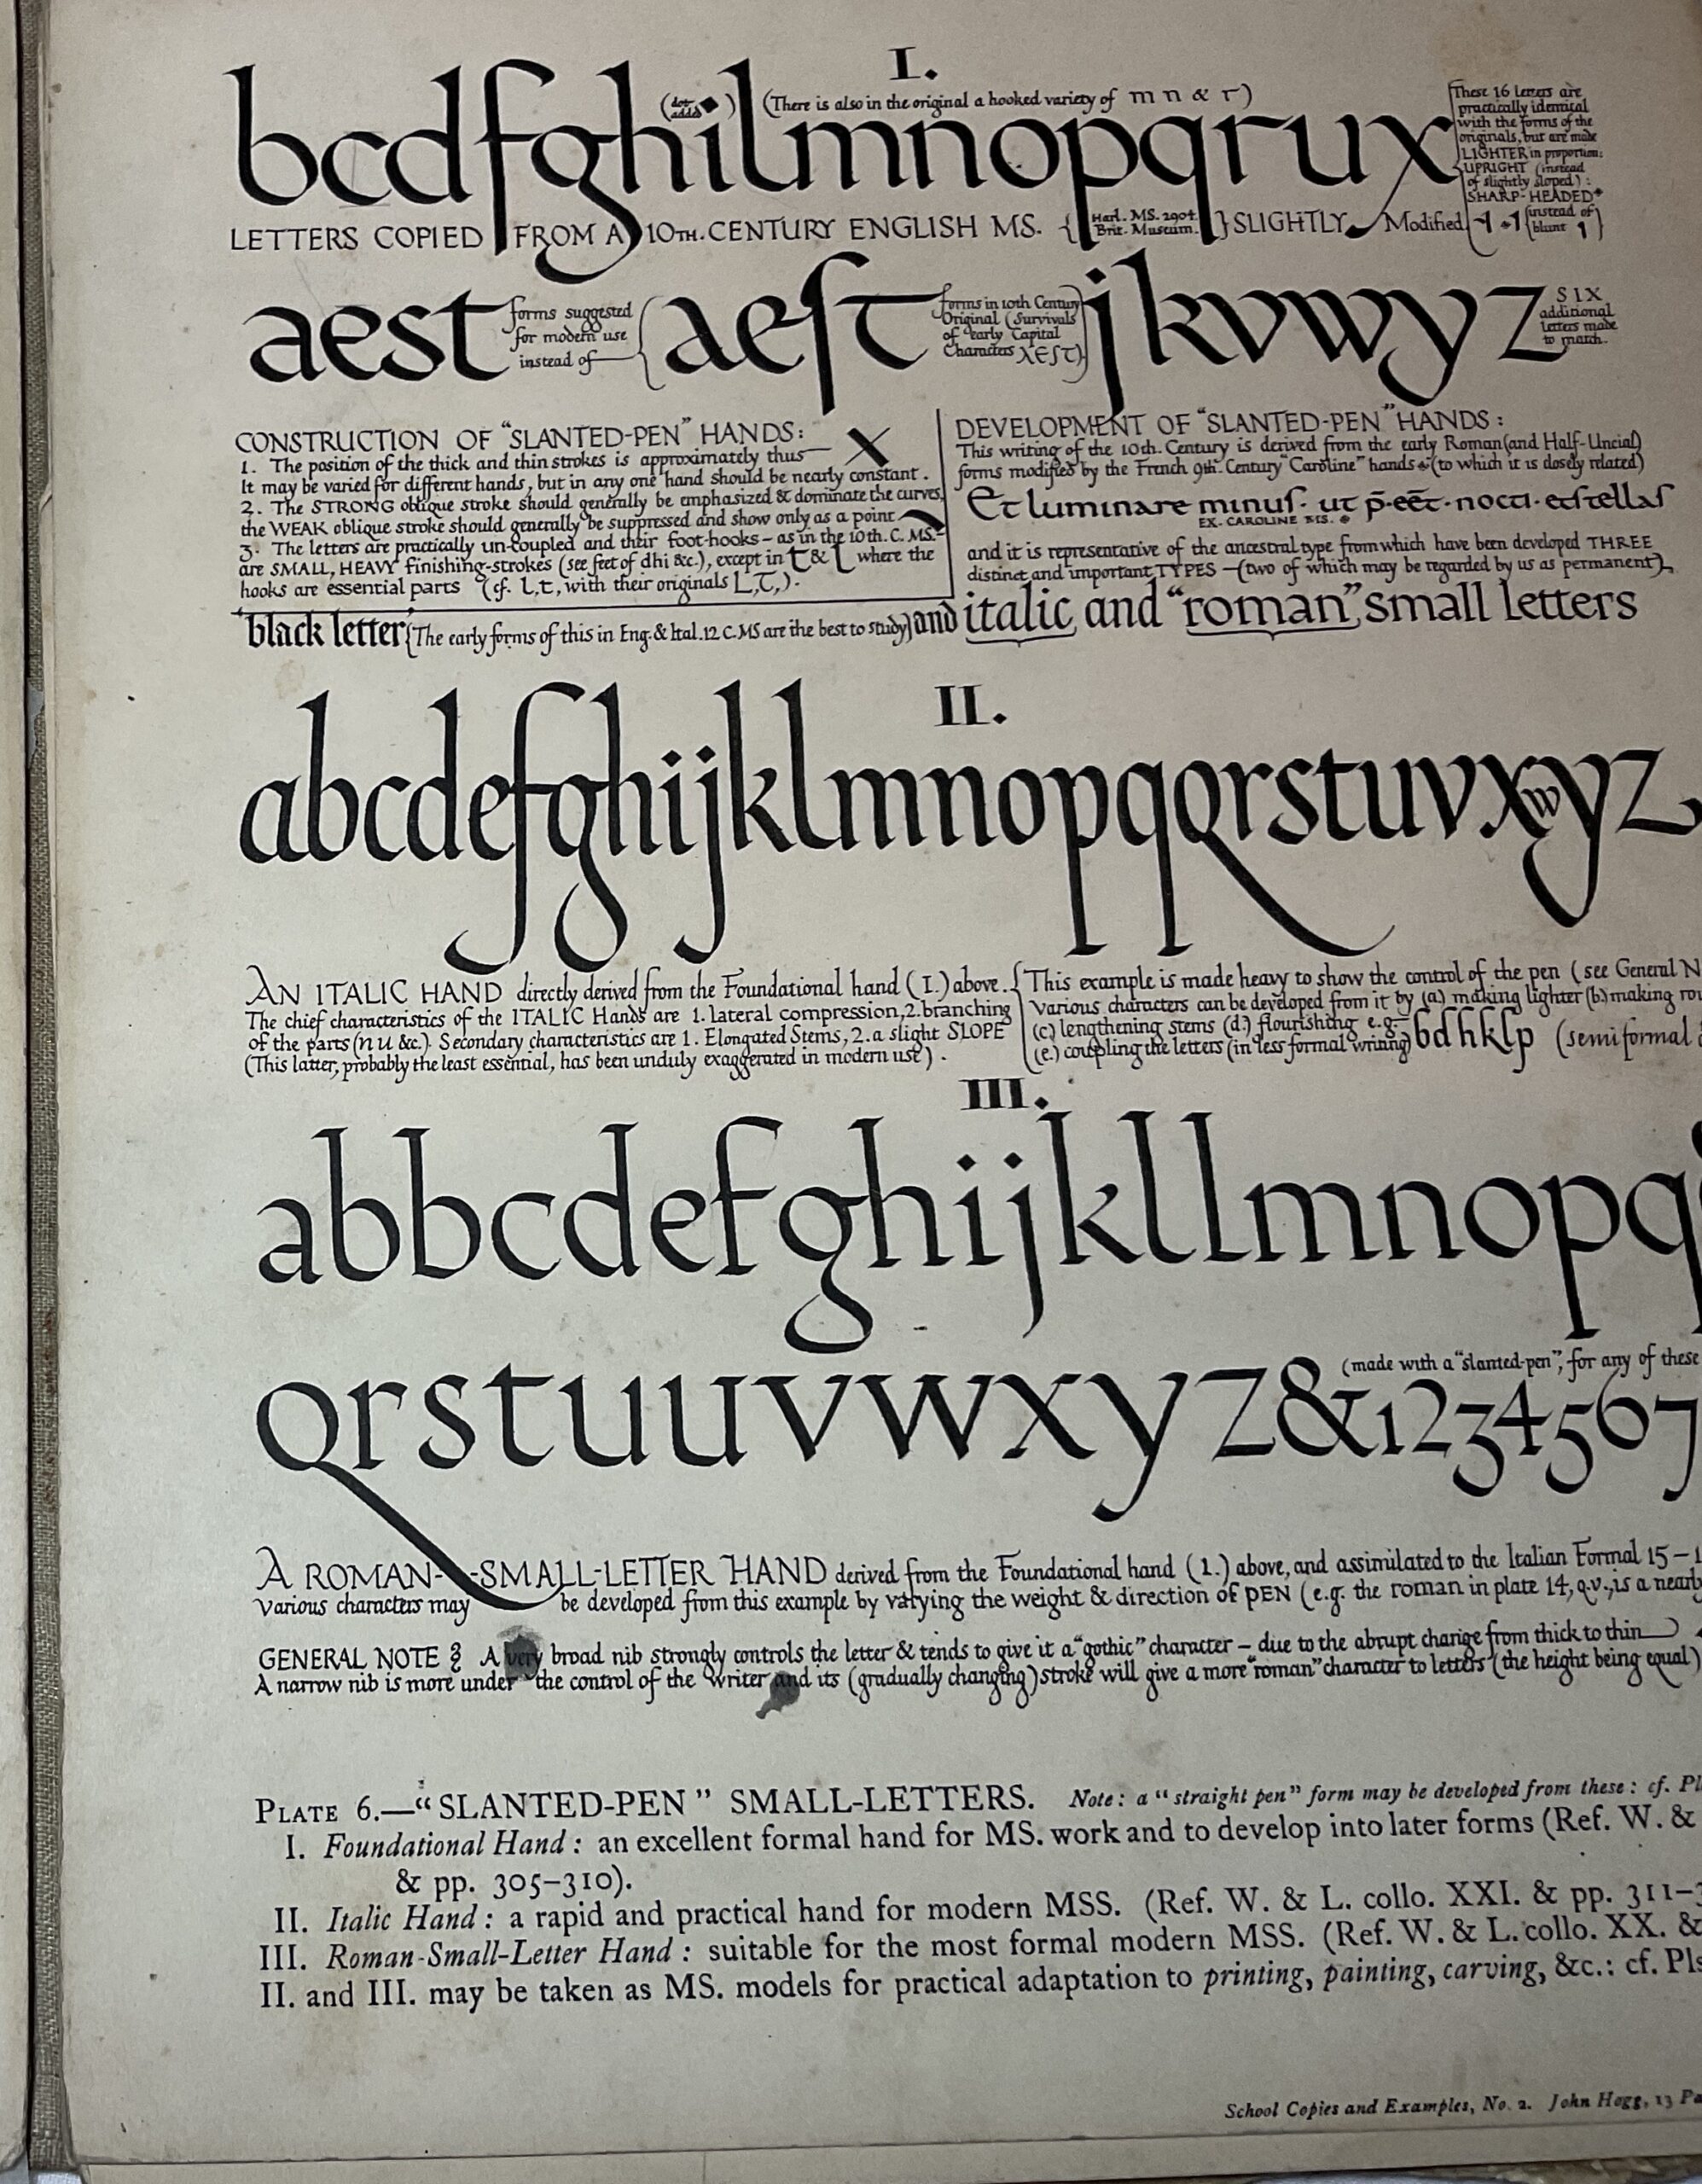 I.
(dot added) (There is also in the original a hooked variety of m n & r)
bcdfghilmnopqrux
These 16 letters are
practically identical
with the forms of the
originals, but are made
LIGHTER in proportion:
UPRIGHT (instead
of slightly sloped):
SHARP-HEADED
(instead of
blunt
LETTERS COPIED FROM A 10TH. CENTURY ENGLISH MS. {Harl. MS. 2904. Brit. Museum.} SLIGHTLY Modified
aest
forms suggested
for modern use
instead of
aeſt
forms in 10th Century
Original (Survivals
of early Capital
Characters
jkvwyz
SIX
additional
letters made
to match.
CONSTRUCTION OF “SLANTED-PEN” HANDS:
1. The position of the thick and thin strokes is approximately thus
It may be varied for different hands, but in any one hand should be nearly constant.
2. The STRONG oblique stroke should generally be emphasized & dominate the curves,
the WEAK oblique stroke should generally be suppressed and show only as a point
3. The letters are practically un-coupled and their foot-hooks – as in the 10th. C. MS. –
are SMALL, HEAVY finishing-strokes (see feet of dhi &c.), except in t & l where the
hooks are essential parts (cf. l, t, with their originals L, T,).
DEVELOPMENT OF “SLANTED-PEN” HANDS:
This writing of the 10th. Century is derived from the early Roman (and Half-Uncial)
forms modified by the French 9th. Century “Caroline” hands (to which it is closely related)
Et luminare minuſ· ut p̄·eēt·nocti·etſtellaſ
EX. CAROLINE MS.
and it is representative of the ancestral type from which have been developed THREE
distinct and important TYPES – (two of which may be regarded by us as permanent)
“black letter” {The early forms of this in Eng. & Ital. 12 C. MS are the best to study} and italic, and “roman” small letters
II.
abcdefghijklmnopqqrstuvxwyz
AN ITALIC HAND directly derived from the Foundational hand (I.) above.
The chief characteristics of the ITALIC Hands are 1. lateral compression, 2. branching
of the parts (n u &c.). Secondary characteristics are 1. Elongated Stems, 2. a slight SLOPE
(This latter, probably the least essential, has been unduly exaggerated in modern use).
This example is made heavy to show the control of the pen (see General N
Various characters can be developed from it by (a) making lighter (b.) making
(c) lengthening stems (d.) flourishing e.g.
(e.) coupling the letters (in less formal writing) bdhklp (semiformal
III.
abbcdefghijkllmnopq
(made with a “slanted-pen”, for any of these
qrstuuvwxyz&1234567
A ROMAN-SMALL-LETTER HAND derived from the Foundational hand (1.) above, and assimilated to the Italian Formal 15–1
Various characters may be developed from this example by varying the weight & direction of PEN (e.g. the roman in plate 14, q.v., is a nearly
GENERAL NOTE § A very broad nib strongly controls the letter & tends to give it a “gothic” character – due to the abrupt change from thick to thin
A narrow nib is more under the control of the writer and its (gradually changing) stroke will give a more “roman” character to letters (the height being equal)
PLATE 6.—“SLANTED-PEN” SMALL-LETTERS. Note: a “straight pen” form may be developed from these: cf. Pl
I. Foundational Hand: an excellent formal hand for MS. work and to develop into later forms (Ref. W. &
& pp. 305–310).
II. Italic Hand: a rapid and practical hand for modern MSS. (Ref. W. & L. collo. XXI. & pp. 311–
III. Roman-Small-Letter Hand: suitable for the most formal modern MSS. (Ref. W. & L. collo. XX. &
II. and III. may be taken as MS. models for practical adaptation to printing, painting, carving, &c.: cf. Pls
School Copies and Examples, No. 2. John Hogg, 13 Pa